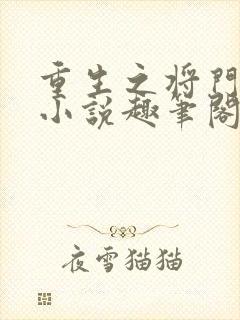 重生之将门
小说趣笔阁
夜雪猫猫